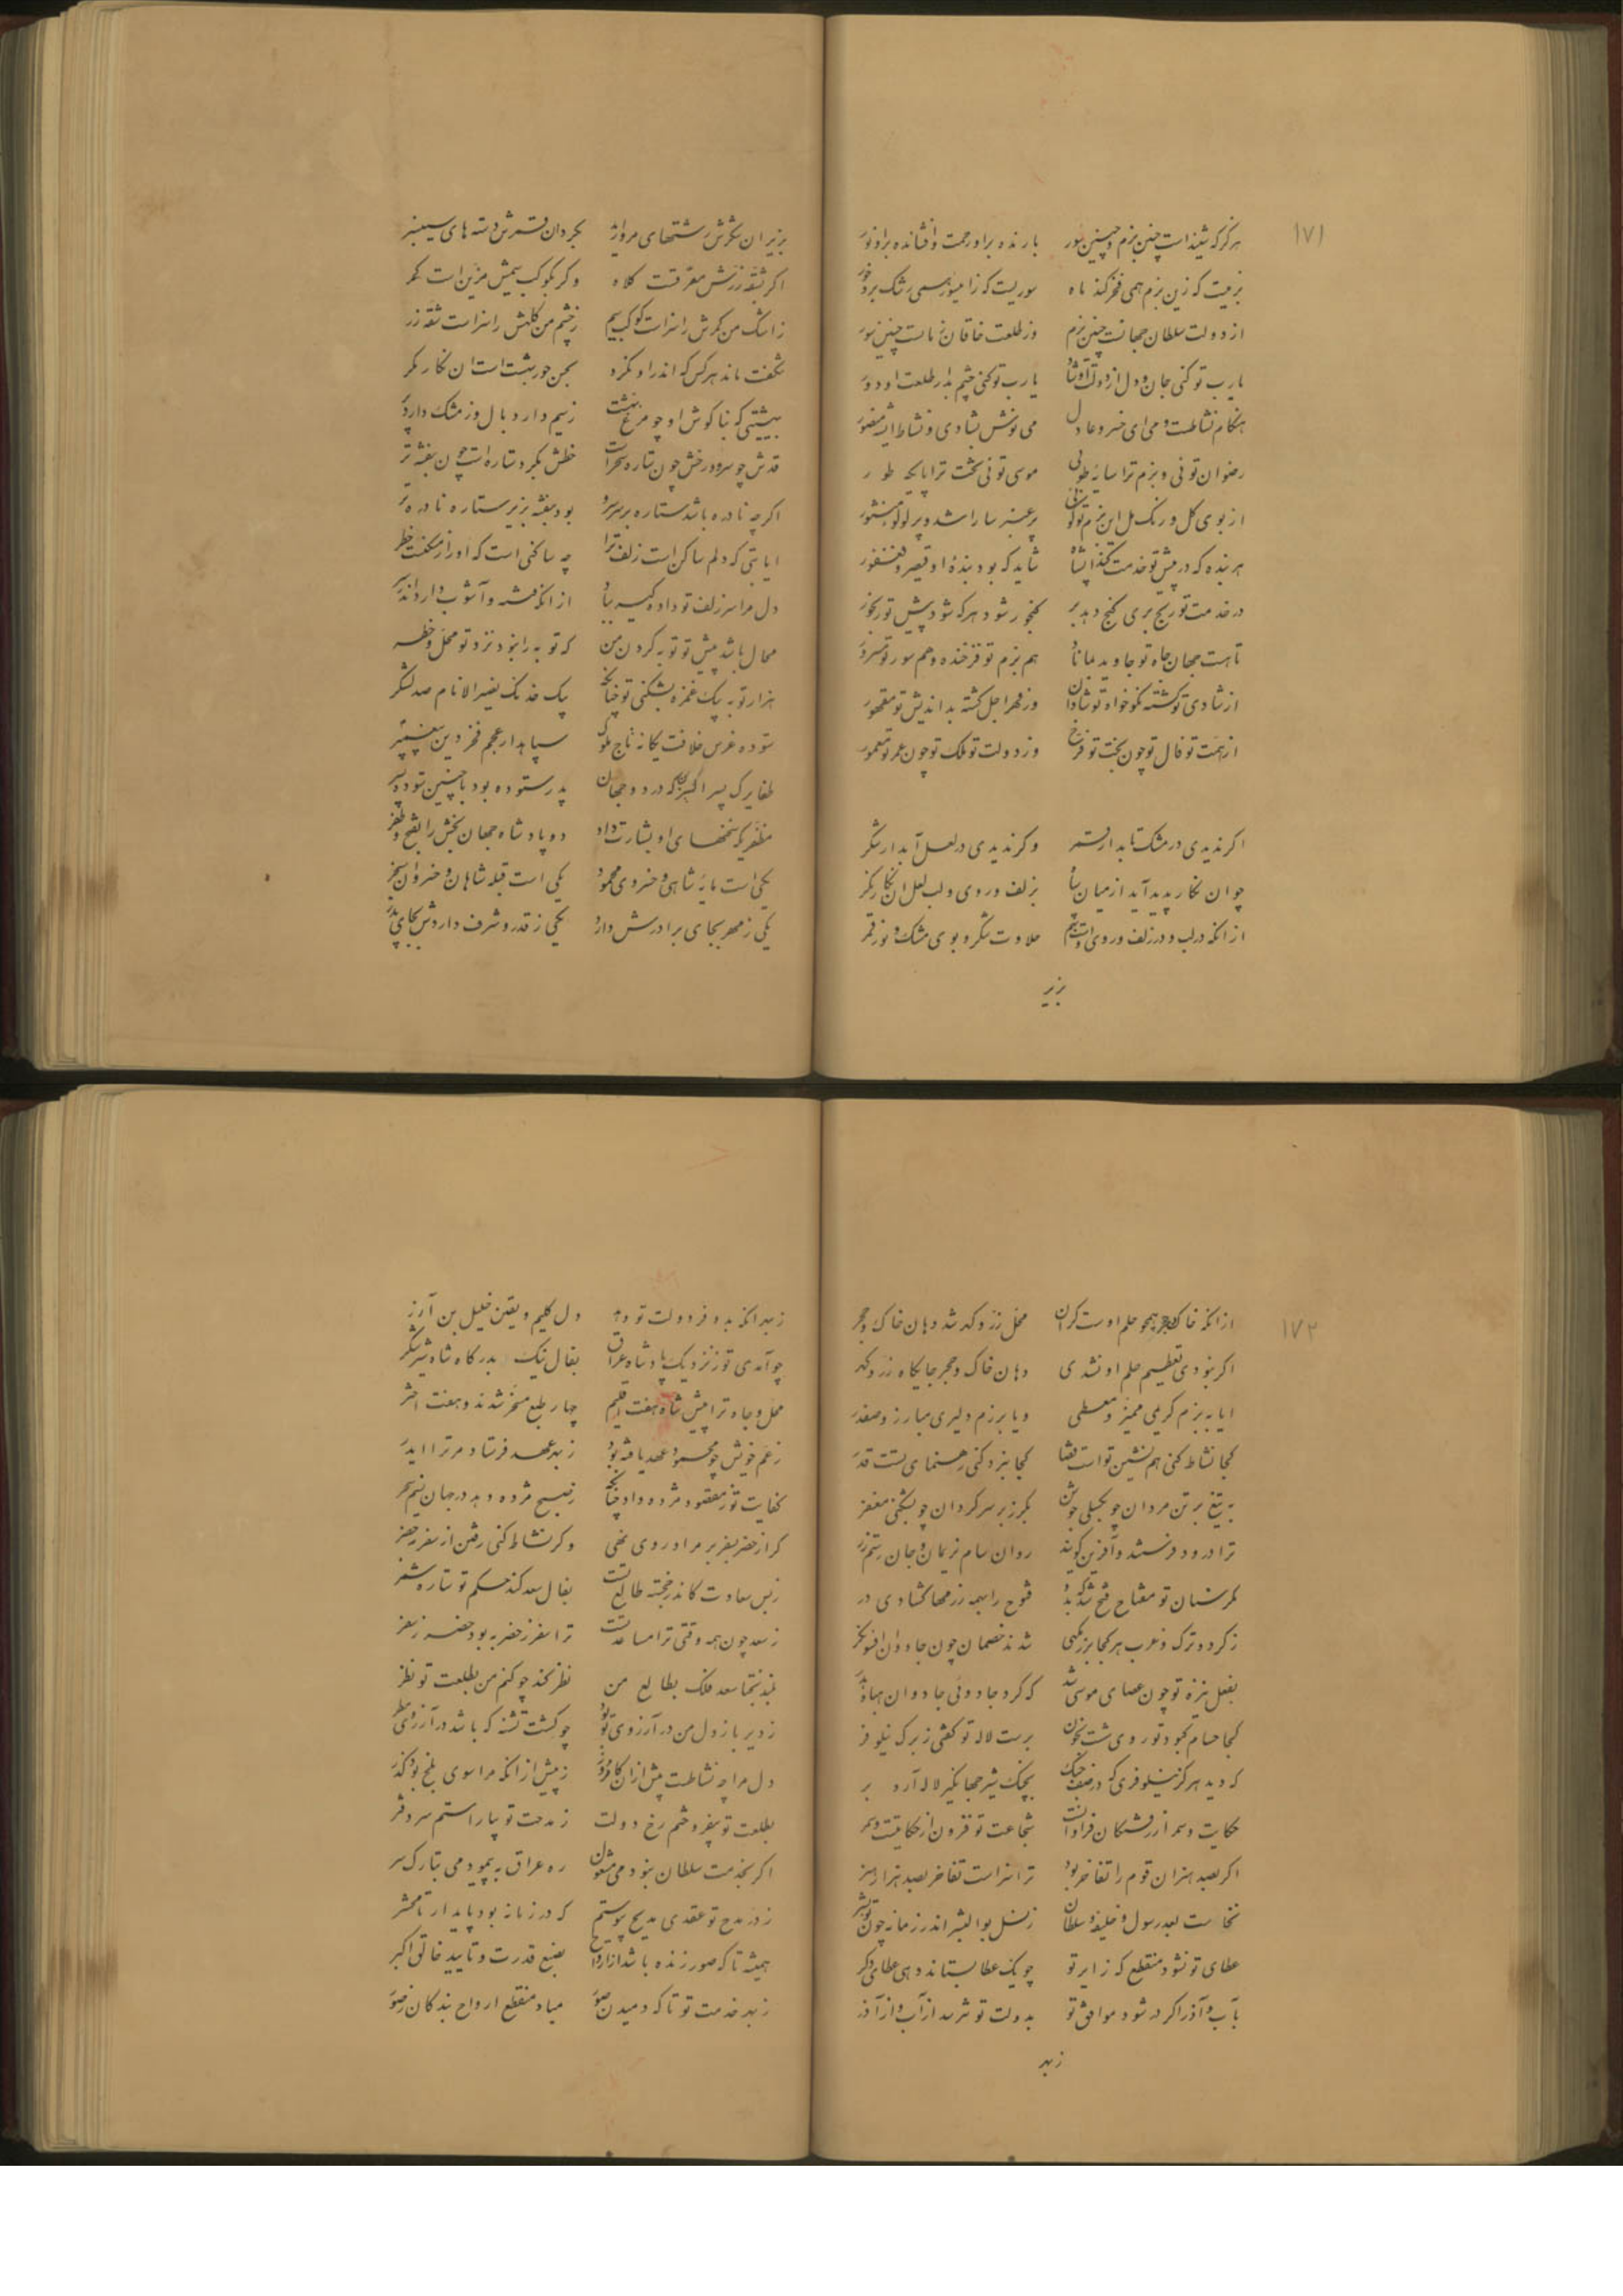 ۱۷۱
هرگز که شنیداست چنین بزم و چنین سور بارنده براو رحمت و افشانده براو نور
بزمیست که زین بزم همی فخر کند ماه سوریست که زا میسور همی رشک برد حور
از دولت سلطان جهانست چنین بزم وز طلعت خاقان زمانست چنین سور
یارب تو کنی جان و دل از دولت او شاد یارب تو کنی چشم بد از طلعت او دور
هنگام نشاطست و می ای خسرو عادل می نوش بشادی و نشاط
رضوان توئی و بزم ترا سایه طوبی موسی توئی تخت ترا پایگه طور
از بوی گل و رنگ مل این بزم تو گوئی پر عنبر سارا شد و پر لولو منثور
هر بنده که در پیش تو خدمت کند ای شاه شاید که بود بندۀ او قیصر و فغفور
در خدمت تو رنج بری گنج دهد بر گنجور شود هر که شود پیش تو رنجور
تا هست جهان جاه تو جاوید بماناد هم بزم تو فرخنده و هم سور تو مسرور
از شادی تو گشته نکوخواه تو شادان وز قهر اجل گشته بداندیش تو مقهور
از همت تو فال تو چون بخت تو فرخ وز دولت تو ملک تو چون عمر تو معمور
اگر ندیدی در مشک تابدار قمر وگر ندیدی در لعل آبدار شکر
چو ان نگار پدید آید از میان سپاه بزلف و روی و لب لعل ان نگار نگر
از انکه در لب و در زلف و روی اوست بهم حلاوت شکر و بوی مشک و نور قمر
بزیر
بزیر ان شکرش رشتهای مروارید بگرد ان قمرش دسته های سیسنبر
اگر بشقه زرش مغرقست کلاه وگر بکوکب سیمش مزین است کمر
ز اشک من کمرش را سزاست کوکب سیم ز چشم من کلهش را سزاست شقه زر
شگفت ماند هر کس که اندر او نگرد بحسن حور بهشت است ان نگار مگر
بهشتی که بناگوش او چو مرغ بهشت ز سیم دارد بال و ز مشک دارد پر
قدش چو سرو و رخش چون ستاره سحر است خطش بگرد ستاره است چون بنفشه تر
اگر چه نادره باشد ستاره بر سر سرو بود بنفشه بزیر ستاره نادره تر
ایا بتی که دلم ساکن است زلف ترا چه ساکنی است که او راز مسکنست خطر
دل مرا سر زلف تو داد و کیسه بباد از انکه فتنه و آشوب دارد اندر سر
محال باشد پیش تو توبه کردن من که توبه را نبود نزد تو محل و خطر
هزار توبه بیک غمزه بشکنی تو چنانکه بیک خدنگ نصیرالانام صد لشکر
ستوده غرس خلافت یگانه تاج ملوک سپاهدار عجم فخر دین پیغمبر
طغایرک پسر اکبزن که در دو جهان پدر ستوده بود با چنین ستوده پسر
مظفریکه سخنهای او بشارت داد دو پادشاه جهان بخش را بفتح و ظفر
یکی است مایۀ شاهی و خسروی محمود یکی است قبله شاهان و خسروان سنجر
یکی ز مهر بجای برادرش دارد یکی ز قدر و شرف داردش بجای پدر
۱۷۲
از انکه خاک و حجر همچو حلم اوست گران محل زر و گهر شد دهان خاک و حجر
اگر نبودی تعظیم حلم او نشدی دهان خاک و حجر جایگاه زر و گهر
ایا به بزم کریمی ممیز و معطی و یا برزم دلیری مبارز و صفدر
کجا نشاط کنی همنشین تو است قضا کجا نبرد کنی رهنمای تست قدر
به تیغ بر تن مردان چو بگسلی جوشن بگرز بر سر گردان چو بشکنی مغفر
ترا درود فرستند و آفرین گویند روان سام نریمان و جان رستم زر
مگر سنان تو مفتاح فتح شد که بدو فتوح را بهمه رزمها گشادی در
ز کرد و ترک و عرب هر کجا برزمگهی شدند خصمان چون جادوان افسونگر
بفعل نیزه تو چون عصای موسی شد که کرد جادوئی جادوان هبا و هدر
کجا حسام کبود تو روی شست بخون برست لاله تو گفتی ز برگ نیلوفر
که دید هرگز نیلوفری که در صف جنگ بچنگ شیر جهانگیر لاله آرد بر
حکایت و سمر از رفتگان فراوانست شجاعت تو فزون از حکایتست و سمر
اگر بصید هنران قوم را تفاخر بود ترا سزاست تفاخر بصد هزار هنر
نخاست بعد رسول و خلیفه و سلطان ز نسل بوالبشر اندر زمانه چون تو بشر
عطای تو نشود منقطع که زایر تو چو یک عطا بستاند دهی عطای دگر
بآب و آذر اگر در شود موافق تو بدولت تو نترسد از آب و از آذر
زبهر
زبهر انکه بدو فر دولت تو دهد دل کلیم و یقین خلیل بن آزر
چو آمدی تو ز نزدیک پادشاه عراق بفال نیک بدرگاه شاه شیر شکر
محل و جاه ترا پیش شاه هفت اقلیم چهار طبع مسخر شدند و هفت اختر
ز عم خویش چو محمود عهد یافته بود ز بهر عهد فرستاد مر ترا ایدر
کفایت تو ز مقصود مژده داد چنانکه ز صبح مژده دهد در جهان نسیم سحر
گر از حضر بسفر بر مراد روی نهی وگر نشاط کنی رفتن از سفر بحضر
ز بس سعادت کاندر خجسته طالع تست بفال سعد کند حکم تو ستاره شمر
ز سعد چون همه وقتی ترا مساعدتست ترا سفر ز حضر به بود حضر ز سفر
نظر نکند چو کنم من بطلعت تو نظر
ز دیر باز دل من در آرزوی تو بود چو کشت تشنه که باشد در آرزوی مطر
دل مرا چه نشاطست پیش از ان کامروز ز پیش از انکه مرا سوی بلخ بود گذر
بطلعت تو بیفروختم رخ دولت ز مدحت تو بیاراستم سر دفتر
اگر بخدمت سلطان نبودمی مشغول ره عراق به پیمودمی بتارک سر
ز در مدح تو عقدی مدیح پیوستم که در زمانه بود پایدار تا محشر
همیشه تا که صور زنده باشد از ارواح بصنع قدرت و تایید خالق اکبر
زبهر خدمت تو تا که دمیدن صور مباد منقطع ارواح بندگان ز صور